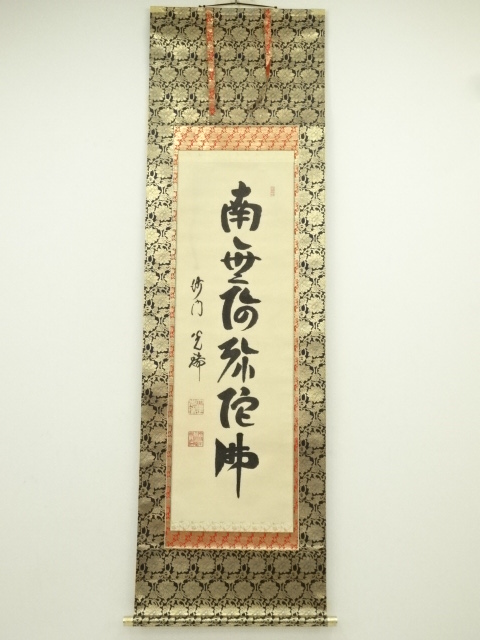 南無阿弥陀佛
沙門 光瑞